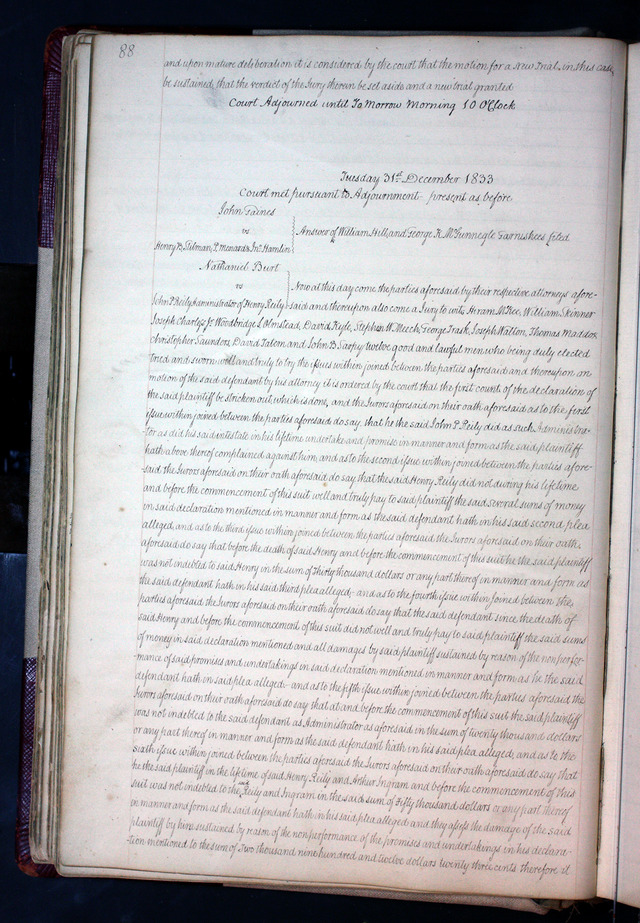 88
and upon mature deliberation it is considered by the court that the motion for a New Trial in this case
be sustained, that the verdict of the Jury therein be set aside and a new trial granted
Court Adjourned until To Morrow Morning 10 O'Clock
Tuesday 31st December 1833
Court met pursuant to Adjournment - present as before
John Gaines
vs
Henry B. Stilman, P. Menard & Jno. Hamlin
Answer of William Hill and George K. McGunnegle Garnishees filed
Nathaniel Burt
vs
John P. Reily Administrator of Henry Reily
Now at this day come the parties aforesaid by their respective attorneys afore-
said and thereupon also come a Jury to wit: Hiram McKee, William Skinner
Joseph Charles Jr Woodbridge L Olmstead, David Kyle, Stephen W Meech, George Trask, Joseph Walton, Thomas Maddox
Christopher Saunder, David Tatom and John B. Sarpy twelve good and lawful men who being duly elected
tried and sworn well and truly to try the issues within joined between the parties aforesaid and thereupon on
motion of the said defendant by his attorney it is ordered by the court that the first count of the declaration of
the said plaintiff be stricken out, which is done, and the Jurors aforesaid on their oath aforesaid as to the first
issue within joined between the parties aforesaid do say, that he the said John P. Reily did as such Administra-
tor as did his said intestate in his lifetime undertake and promise in manner and form as the said plaintiff
hath above thereof complained against him, and as to the second issue within joined between the parties afore-
said the Jurors aforesaid on their oath aforesaid do say that the said Henry Reily did not during his lifetime
and before the commencement of this suit well and truly pay to said plaintiff the said several sums of money
in said declaration mentioned in manner and form as the said defendant hath in his said second plea
alleged, and as to the third issue within joined between the parties aforesaid the Jurors aforesaid on their oath
aforesaid do say that before the death of said Henry and before the commencement of this suit he the said plaintiff
was not indebted to said Henry in the sum of Thirty thousand dollars or any part thereof in manner and form as
the said defendant hath in his said third plea alleged,- and as to the fourth issue within joined between the
parties aforesaid the Jurors aforesaid on their oath aforesaid do say that the said defendant since the death of
said Henry and before the commencement of this suit did not well and truly pay to said plaintiff the said sums
of money in said declaration mentioned and all damages by said plaintiff sustained by reason of the nonperfor-
mance of said promises and undertakings in said declaration mentioned in manner and form as he the said
defendant hath in said plea alleged:- and as to the fifth issue within joined between the parties aforesaid the
Jurors aforesaid on their oath aforesaid do say that at and before the commencement of this suit the said plaintiff
was not indebted to the said defendant as Administrator as aforesaid in the sum of twenty thousand dollars
or any part thereof in manner and form as the said defendant hath in his said plea alleged, and as to the
sixth issue within joined between the parties aforesaid the Jurors aforesaid on their oath aforesaid do say that
he the said plaintiff in the lifetime of said Henry Reily and Arthur Ingram and before the commencement of this
suit was not indebted to the said Reily and Ingram in the said sum of Fifty thousand dollars or any part thereof
in manner and form as the said defendant hath in his said plea alleged and they assess the damage of the said
plaintiff by him sustained by reason of the nonperformance of the promises and undertakings in his declara-
tion mentioned to the sum of Two thousand nine hundred and twelve dollars twenty three cents therefore it